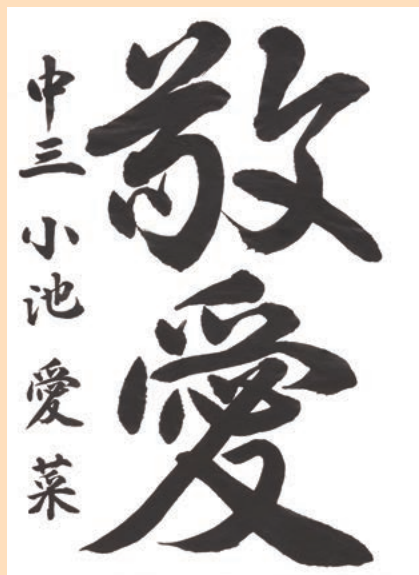 敬愛
中三 小池 愛菜